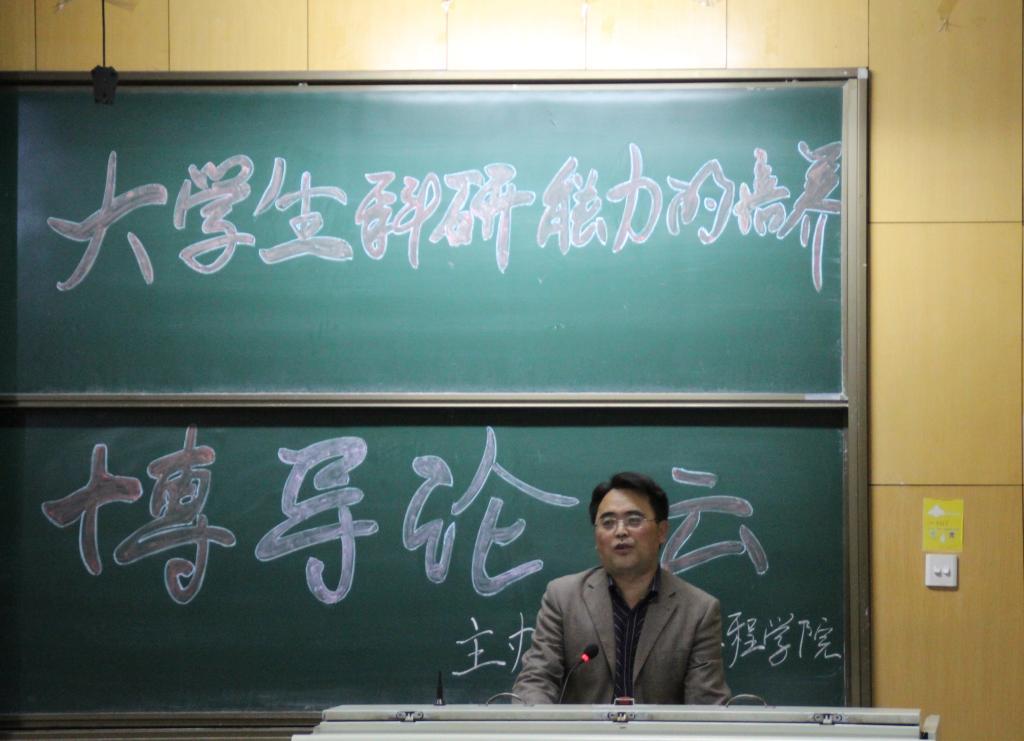 大学生科研能力的培养
博导论坛
主办 程学院